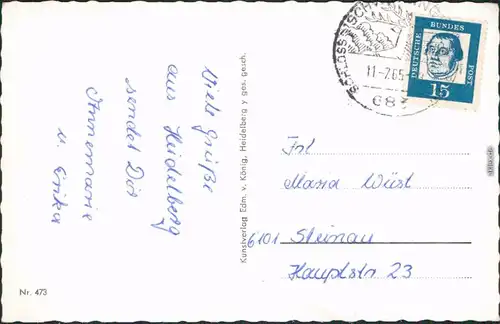 Viele Grüße
aus Heidelberg
sendet Dir
Annemarie
u. Erika
Kunstverlag Edm. v. König, Heidelberg y ges. gesch.
Nr. 473
11-7.65
683
DEUTSCHE BUNDESPOST
15
Frl
Maria Wüst
6101 Steinau
Hauptstr 23